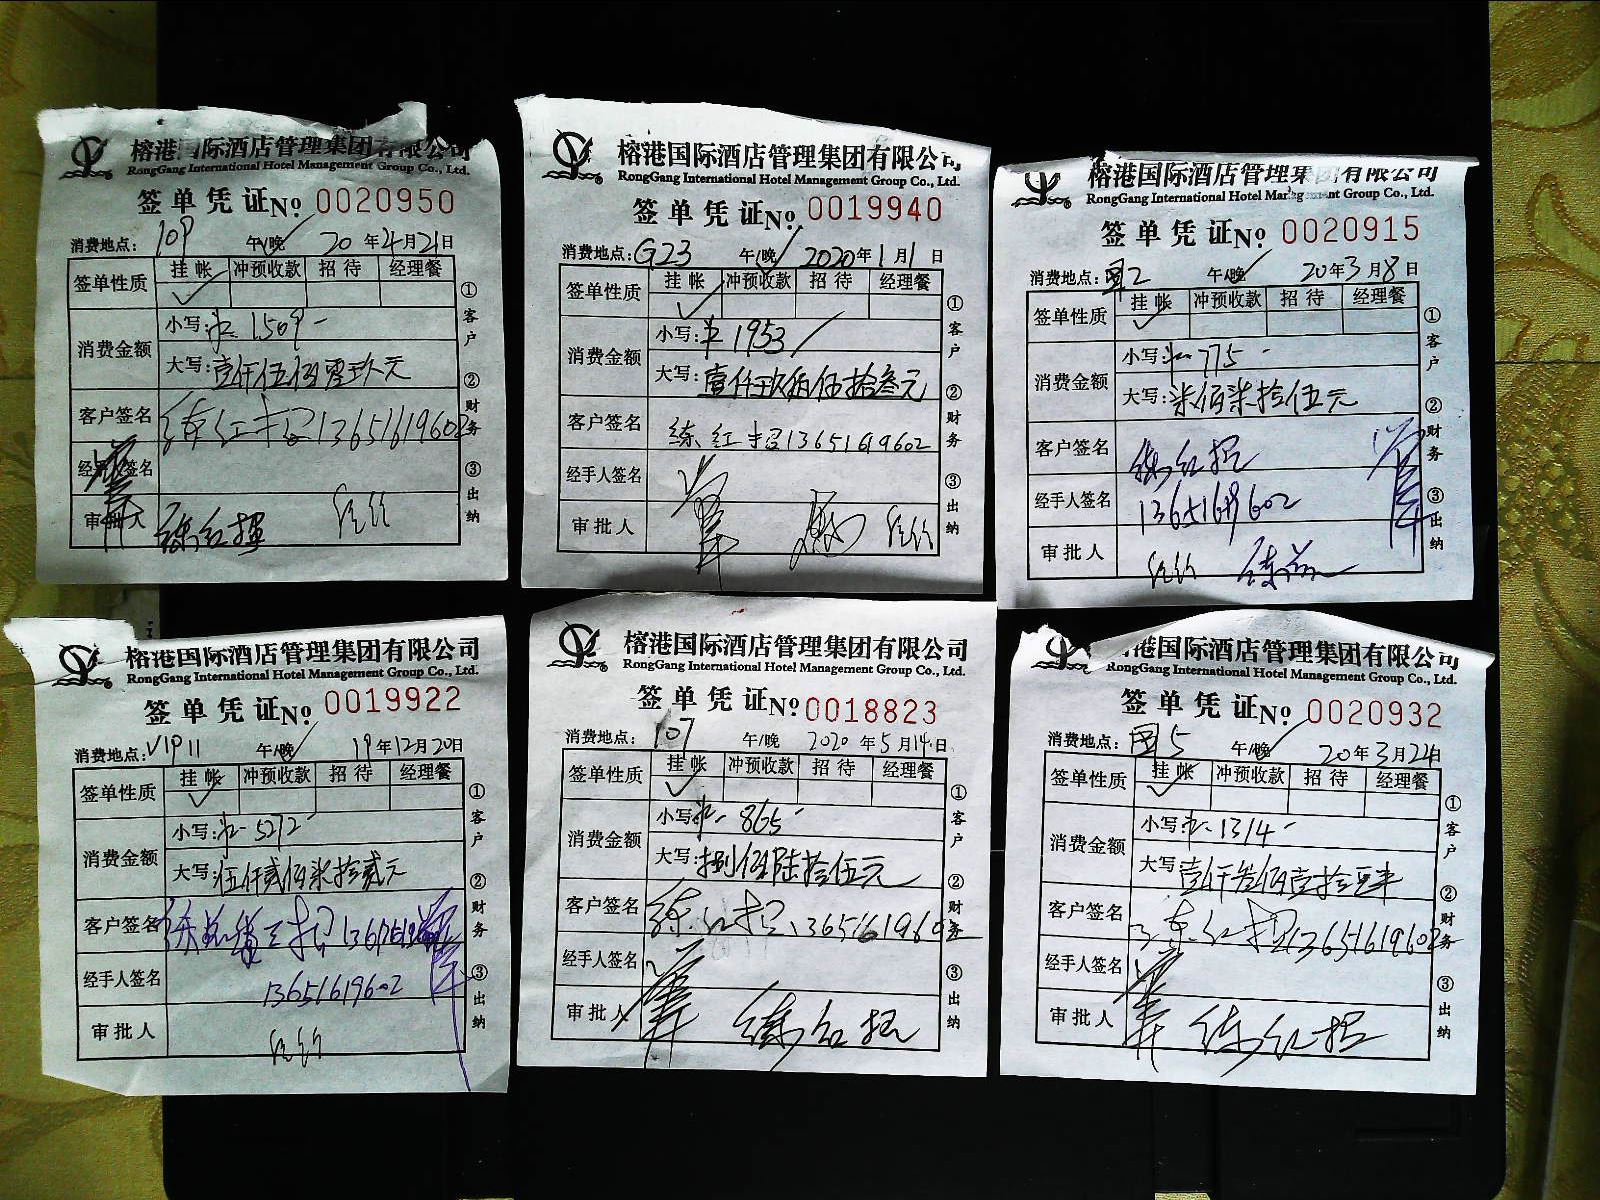 榕港国际酒店管理集团有限公司
RongGang International Hotel Management Group Co., Ltd.
签单凭证 No 0020950
消费地点: 109 午/晚 20年4月21日
签单性质 挂帐 冲预收款 招待 经理餐
✓
消费金额 小写: 1509-
大写: 壹仟伍佰零玖元
客户签名 练红 13651619602
经手人签名
审批人 练红
①客户 ②财务 ③出纳
榕港国际酒店管理集团有限公司
RongGang International Hotel Management Group Co., Ltd.
签单凭证 No 0019940
消费地点: G23 午/晚 2020年1月1日
签单性质 挂帐 冲预收款 招待 经理餐
✓
消费金额 小写: 1953/
大写: 壹仟玖佰伍拾叁元
客户签名 练红 13651619602
经手人签名
审批人
①客户 ②财务 ③出纳
榕港国际酒店管理集团有限公司
RongGang International Hotel Management Group Co., Ltd.
签单凭证 No 0020915
消费地点: 2 午/晚 20年3月8日
签单性质 挂帐 冲预收款 招待 经理餐
✓
消费金额 小写: 775-
大写: 柒佰柒拾伍元
客户签名 练红
经手人签名 13651619602
审批人
①客户 ②财务 ③出纳
榕港国际酒店管理集团有限公司
RongGang International Hotel Management Group Co., Ltd.
签单凭证 No 0019922
消费地点: VIP11 午/晚 19年12月20日
签单性质 挂帐 冲预收款 招待 经理餐
✓
消费金额 小写: 5272-
大写: 伍仟贰佰柒拾贰元
客户签名
经手人签名 13651619602
审批人
①客户 ②财务 ③出纳
榕港国际酒店管理集团有限公司
RongGang International Hotel Management Group Co., Ltd.
签单凭证 No 0018823
消费地点: 107 午/晚 2020年5月14日
签单性质 挂帐 冲预收款 招待 经理餐
✓
消费金额 小写: 865-
大写: 捌佰陆拾伍元
客户签名 练红 13651619602
经手人签名
审批人 练红
①客户 ②财务 ③出纳
榕港国际酒店管理集团有限公司
RongGang International Hotel Management Group Co., Ltd.
签单凭证 No 0020932
消费地点: 5 午/晚 20年3月24日
签单性质 挂帐 冲预收款 招待 经理餐
✓
消费金额 小写: 1314-
大写: 壹仟叁佰壹拾肆
客户签名 练红 13651619602
经手人签名
审批人 练红
①客户 ②财务 ③出纳